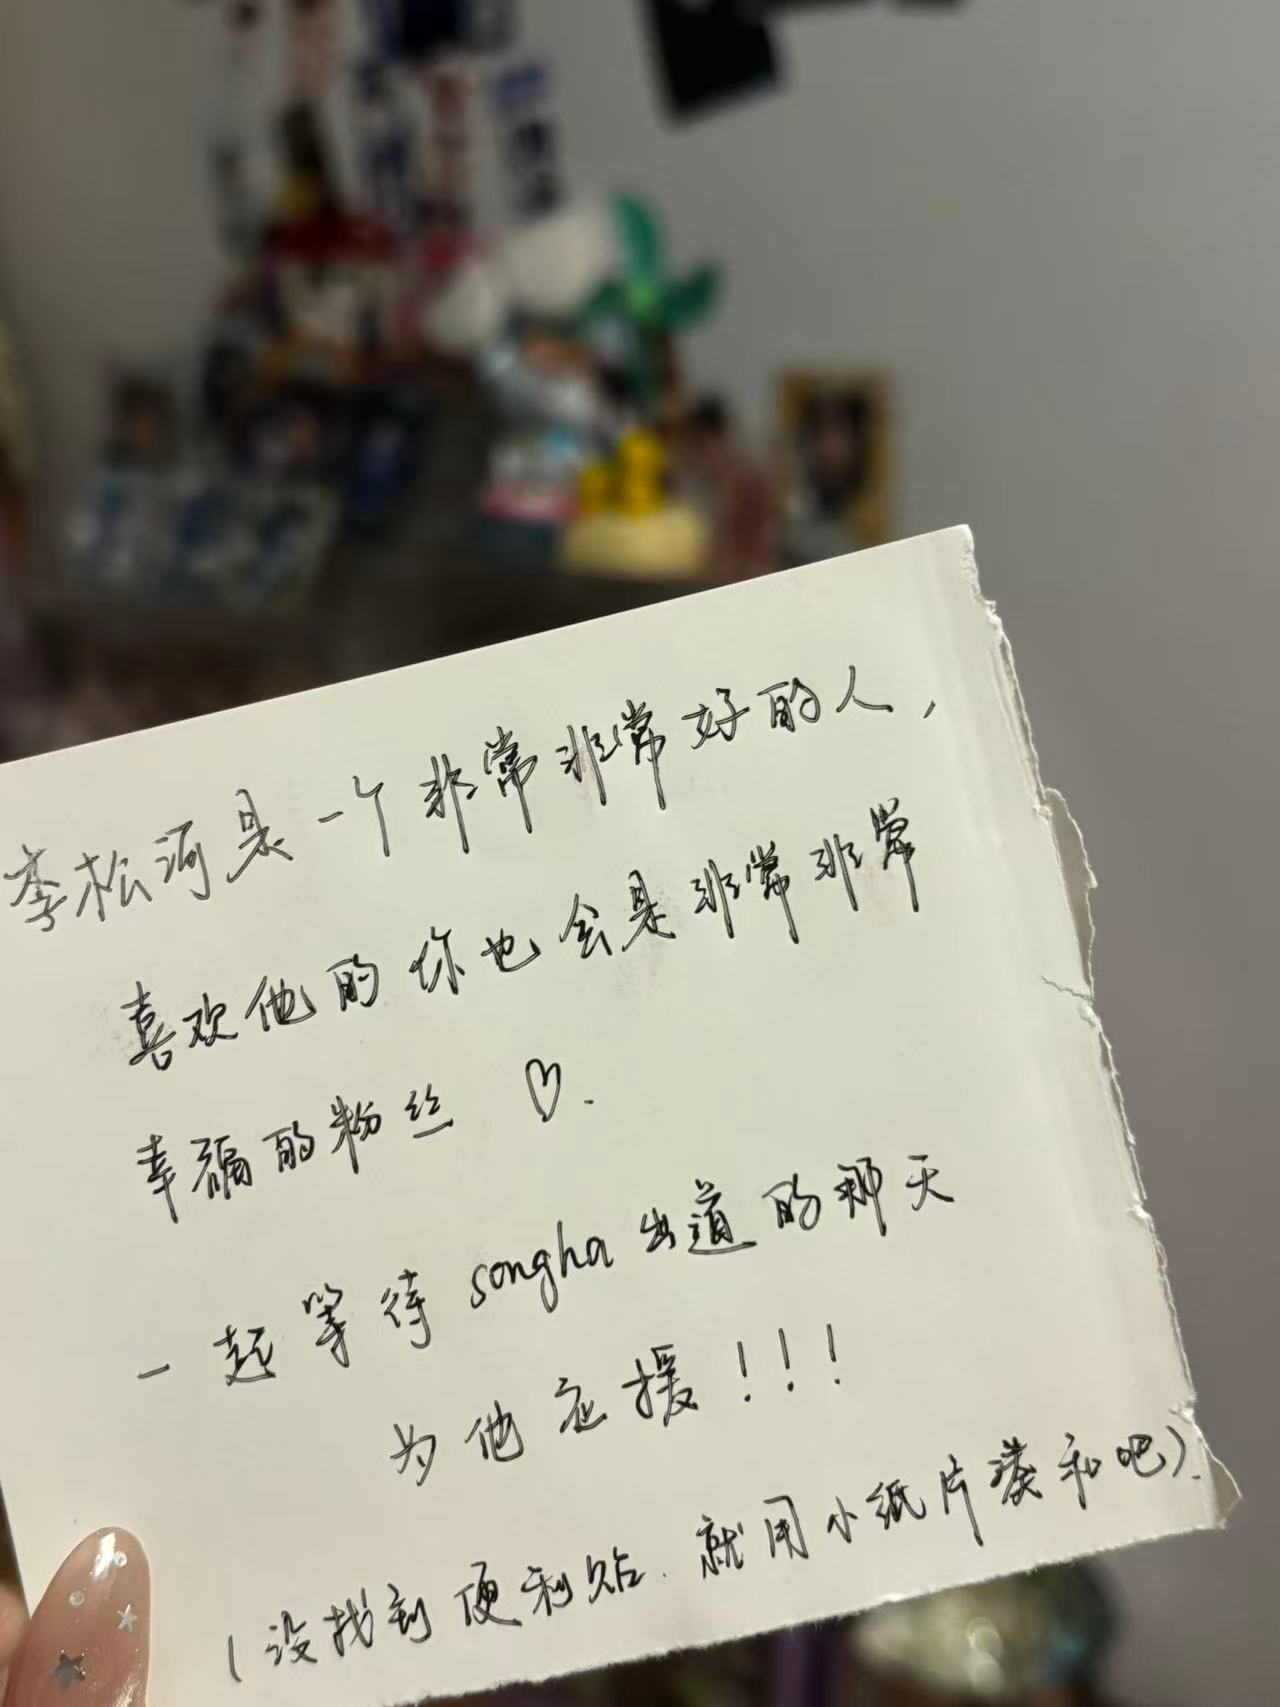 李松河是一个非常非常好的人，
喜欢他的你也会是非常非常
幸福的粉丝 ♡.
一起等待 songha 出道的那天
为他应援！！！
(没找到便利贴.就用小纸片凑和吧).